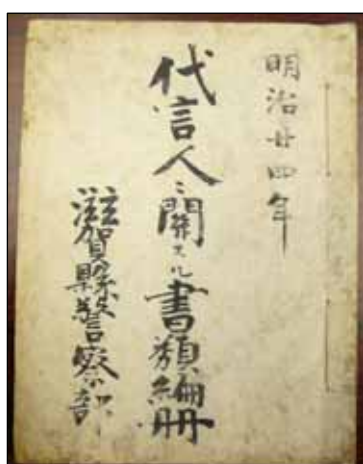 明治廿四年
代言人ニ關スル書類編冊
滋賀縣警察部